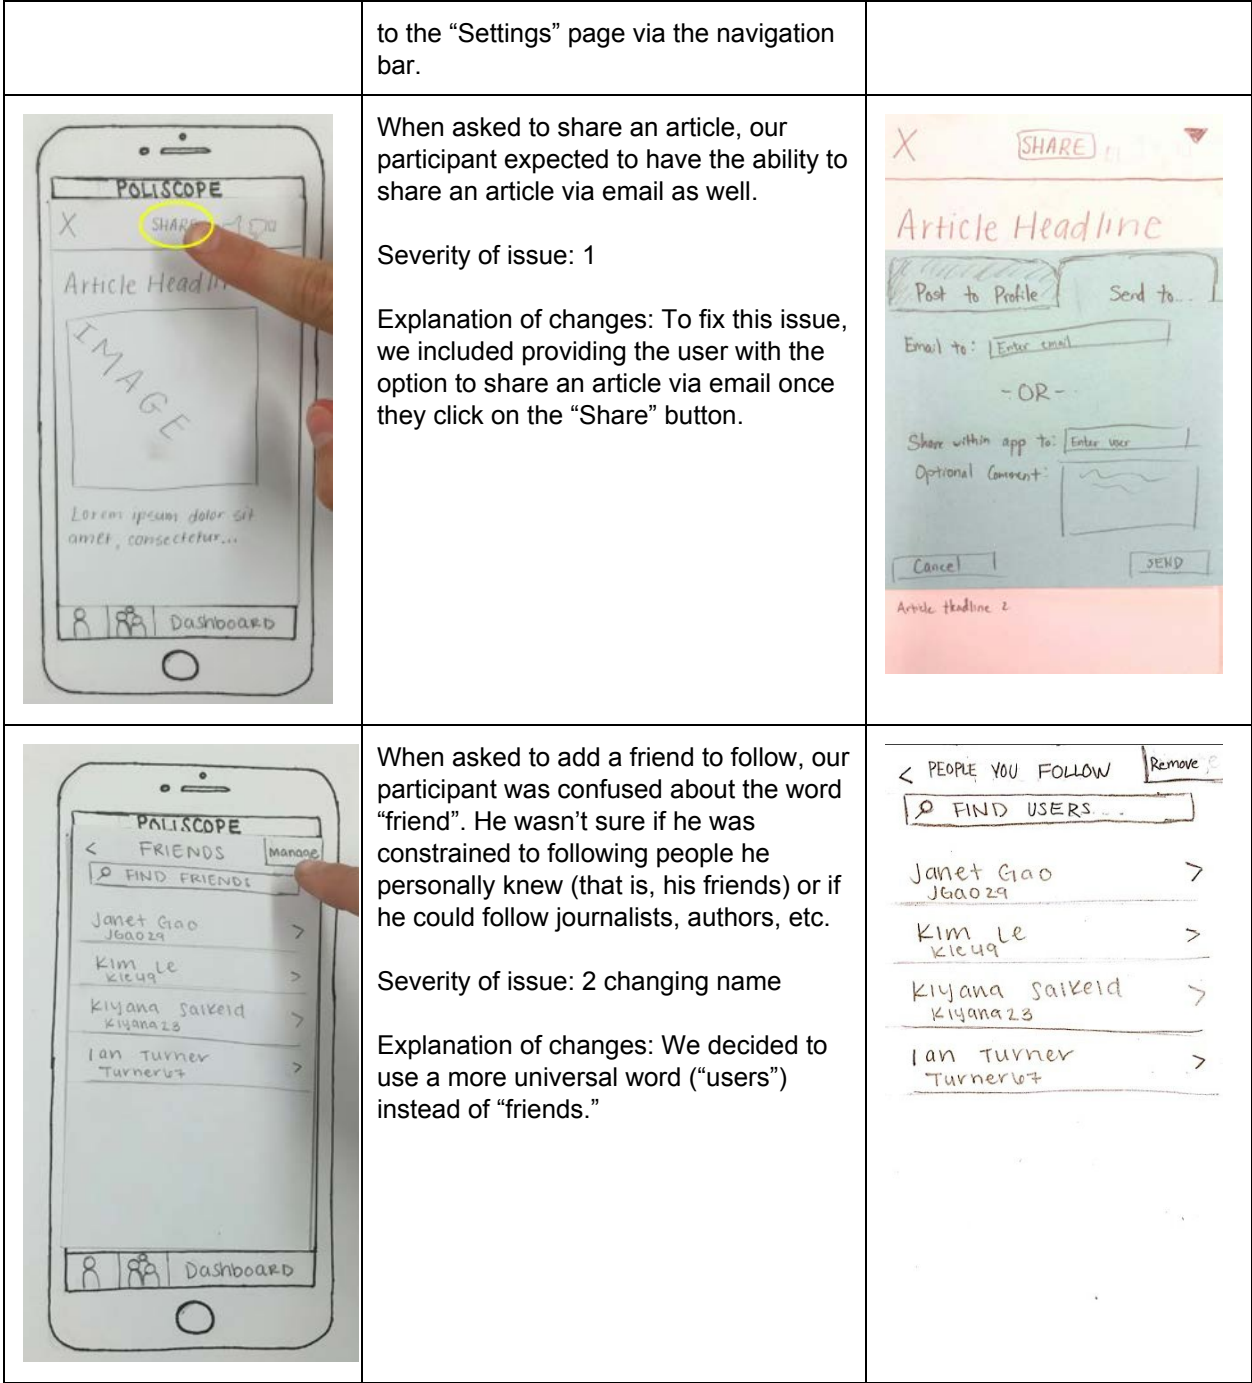 to the “Settings” page via the navigation
bar.
POLISCOPE
X SHARE
Article Headlin
IMAGE
Lorem ipsum dolor sit
amet, consectetur...
Dashboard
When asked to share an article, our
participant expected to have the ability to
share an article via email as well.
Severity of issue: 1
Explanation of changes: To fix this issue,
we included providing the user with the
option to share an article via email once
they click on the “Share” button.
X SHARE
Article Headline
Post to Profile Send to...
Email to: Enter email
-OR-
Share within app to: Enter user
Optional Comment:
Cancel SEND
Article Headline 2
POLISCOPE
< FRIENDS Manage
FIND FRIENDS
Janet Gao >
JGao29
Kim Le >
Kle49
Kiyana Saikeld >
Kiyana23
Ian Turner >
Turner67
Dashboard
When asked to add a friend to follow, our
participant was confused about the word
“friend”. He wasn’t sure if he was
constrained to following people he
personally knew (that is, his friends) or if
he could follow journalists, authors, etc.
Severity of issue: 2 changing name
Explanation of changes: We decided to
use a more universal word (“users”)
instead of “friends.”
< PEOPLE YOU FOLLOW Remove
FIND USERS...
Janet Gao >
JGao29
Kim Le >
Kle49
Kiyana Saikeld >
Kiyana23
Ian Turner >
Turner67